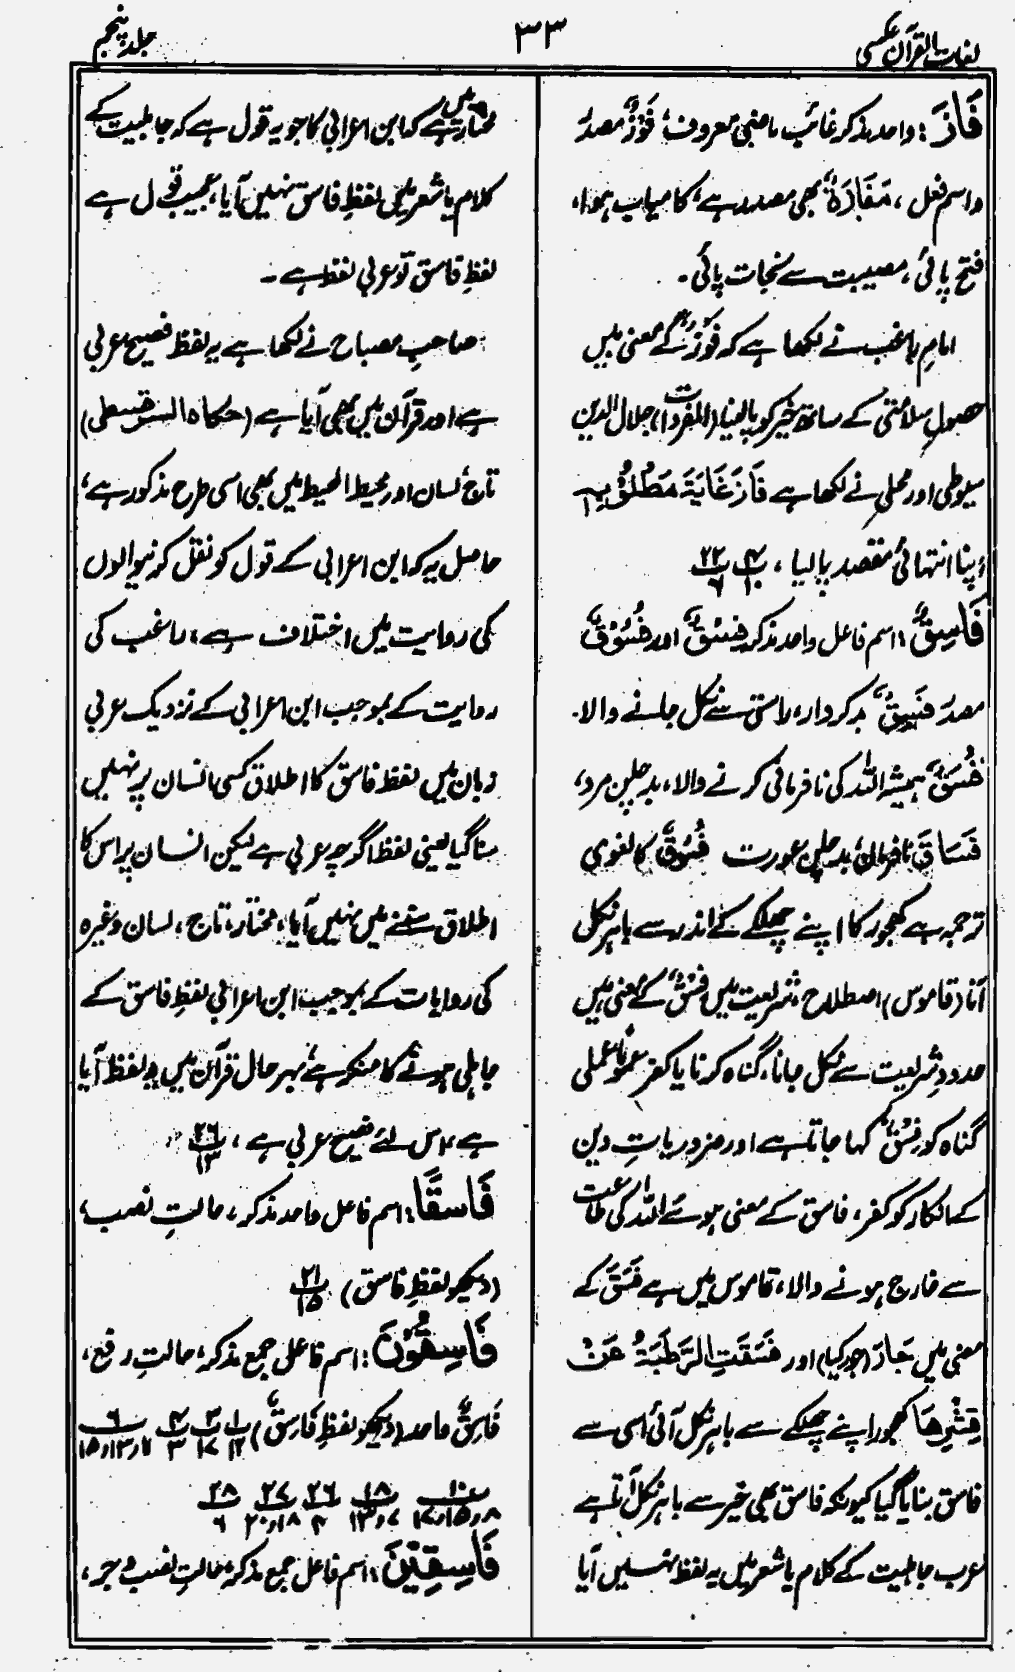 لغات القرآن عکسی
۳۳
جلد پنجم
فَازَ: واحد مذکر غائب ماضی معروف، فَوْزٌ مصدر
واسم فعل، مَفَازَةٌ بھی مصدر ہے، کامیاب ہوا،
فتح پائی، مصیبت سے نجات پائی۔
امام راغب نے لکھا ہے کہ فَوْزٌ کے معنی ہیں
حصولِ سلامتی کے ساتھ خیر کو پا لینا (المفردات) جلال الدین
سیوطی اور محلی نے لکھا ہے فَازَ غَایَةَ مَطْلُوْبِہٖ
اپنا انتہائی مقصد پا لیا، ۴/۱۰ ۲۲/۶
فَاسِقٌ: اسم فاعل واحد مذکر فِسْقٌ اور فُسُوْقٌ
مصدر فَسِقٌ بدکردار، راستی سے نکل جانے والا۔
فُسَقٌ ہمیشہ اللہ کی نافرمانی کرنے والا، بدچلن مرد،
فَسَاقِ نافرمان، بدچلن عورت فُسُوْقٌ کا لغوی
ترجمہ ہے کھجور کا اپنے چھلکے کے اندر سے باہر نکل
آنا (قاموس) اصطلاح شریعت میں فِسْقٌ کے معنی ہیں
حدودِ شریعت سے نکل جانا، گناہ کرنا یا کفر عموماً عملی
گناہ کو فِسْقٌ کہا جاتا ہے اور ضروریاتِ دین
کے انکار کو کفر، فاسق کے معنی ہوئے اللہ کی طاعت
سے خارج ہونے والا، قاموس میں ہے فَسَقَ کے
معنی ہیں جَارَ (جور کیا) اور فَسَقَتِ الرُّطَبَةُ عَنْ
قِشْرِھَا کھجور اپنے چھلکے سے باہر نکل آئی اسی سے
فاسق بنایا گیا کیونکہ فاسق بھی خیر سے باہر نکل آتا ہے
عرب جاہلیت کے کلام یا شعر میں یہ لفظ نہیں آیا
مختار میں ہے کہ ابن اعرابی کا جو یہ قول ہے کہ جاہلیت کے
کلام یا شعر میں لفظِ فاسق نہیں آیا، عجیب قول ہے
لفظِ فاسق تو عربی لفظ ہے۔
صاحبِ مصباح نے لکھا ہے یہ لفظ فصیح عربی
ہے اور قرآن میں بھی آیا ہے (حکاہ السرقسطی)
تاج، لسان اور محیط المحیط میں بھی اسی طرح مذکور ہے،
حاصل یہ کہ ابن اعرابی کے قول کو نقل کرنیوالوں
کی روایت میں اختلاف ہے، راغب کی
روایت کے بموجب ابن اعرابی کے نزدیک عربی
زبان میں لفظ فاسق کا اطلاق کسی انسان پر نہیں
سنا گیا یعنی لفظ اگرچہ عربی ہے لیکن انسان پر اس کا
اطلاق سننے میں نہیں آیا، مختار، تاج، لسان وغیرہ
کی روایات کے بموجب ابن اعرابی لفظِ فاسق کے
جاہلی ہونے کا منکر ہے، بہرحال قرآن میں یہ لفظ آیا
ہے، اس لئے فصیح عربی ہے، ۲۶/۱۳
فَاسِقًا: اسم فاعل واحد مذکر، حالتِ نصب،
(دیکھو لفظِ فاسق) ۲۱/۱۵
فَاسِقُوْنَ: اسم فاعل جمع مذکر، حالتِ رفع،
فَاسِقٌ واحد (دیکھو لفظِ فَاسِقٌ) ۱/۱۲ ۳/۱۷ ۴/۳
۱۰ ۱۸ ۲۶ ۲۷ ۲۸/۶
فَاسِقِیْنَ: اسم فاعل جمع مذکر، حالتِ نصب و جر،